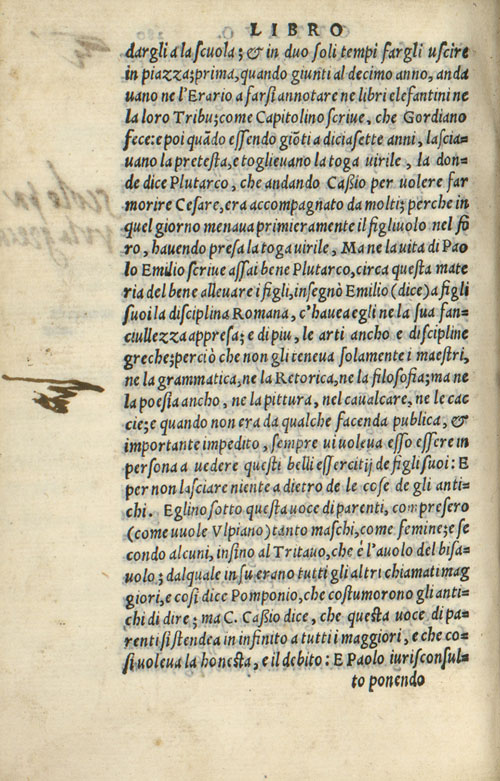 LIBRO
dargli a la scuola; & in duo soli tempi fargli uscire
in piazza; prima, quando giunti al decimo anno, anda
uano ne l'Erario a farsi annotare ne libri elefantini ne
la loro Tribu; come Capitolino scriue, che Gordiano
fece: e poi quādo essendo giōti a diciasette anni, lascia=
uano la pretesta, e toglieuano la toga uirile, la don=
de dice Plutarco, che andando Caßio per uolere far
morire Cesare, era accompagnato da molti; perche in
quel giorno menaua primieramente il figliuolo nel fo
ro, hauendo presa la toga uirile, Ma ne la uita di Pao
lo Emilio scriue assai bene Plutarco, circa questa mate
ria del bene alleuare i figli, insegnò Emilio (dice) a figli
suoi la disciplina Romana, c'hauea egli ne la sua fan=
ciullezza appresa; e di piu, le arti ancho e discipline
greche; perciò che non gli teneua solamente i maestri,
ne la grammatica, ne la Retorica, ne la filosofia; ma ne
la poesia ancho, ne la pittura, nel caualcare, ne le cac
cie; e quando non era da qualche facenda publica, &
importante impedito, sempre ui uoleua esso essere in
persona a uedere questi belli essercitij de figli suoi: E
per non lasciare niente a dietro de le cose de gli anti=
chi. Eglino sotto questa uoce di parenti, compresero
(come uuole Vlpiano) tanto maschi, come femine; e se
condo alcuni, insino al Tritauo, che é l'auolo del bisa=
uolo; dalquale in su erano tutti gli altri chiamati mag
giori, e così dice Pomponio, che costumorono gli anti=
chi di dire; ma C. Caßio dice, che questa uoce di pa=
renti si stendea in infinito a tutti i maggiori, e che co=
sì uoleua la honesta, e il debito: E Paolo iurisconsul=
to ponendo